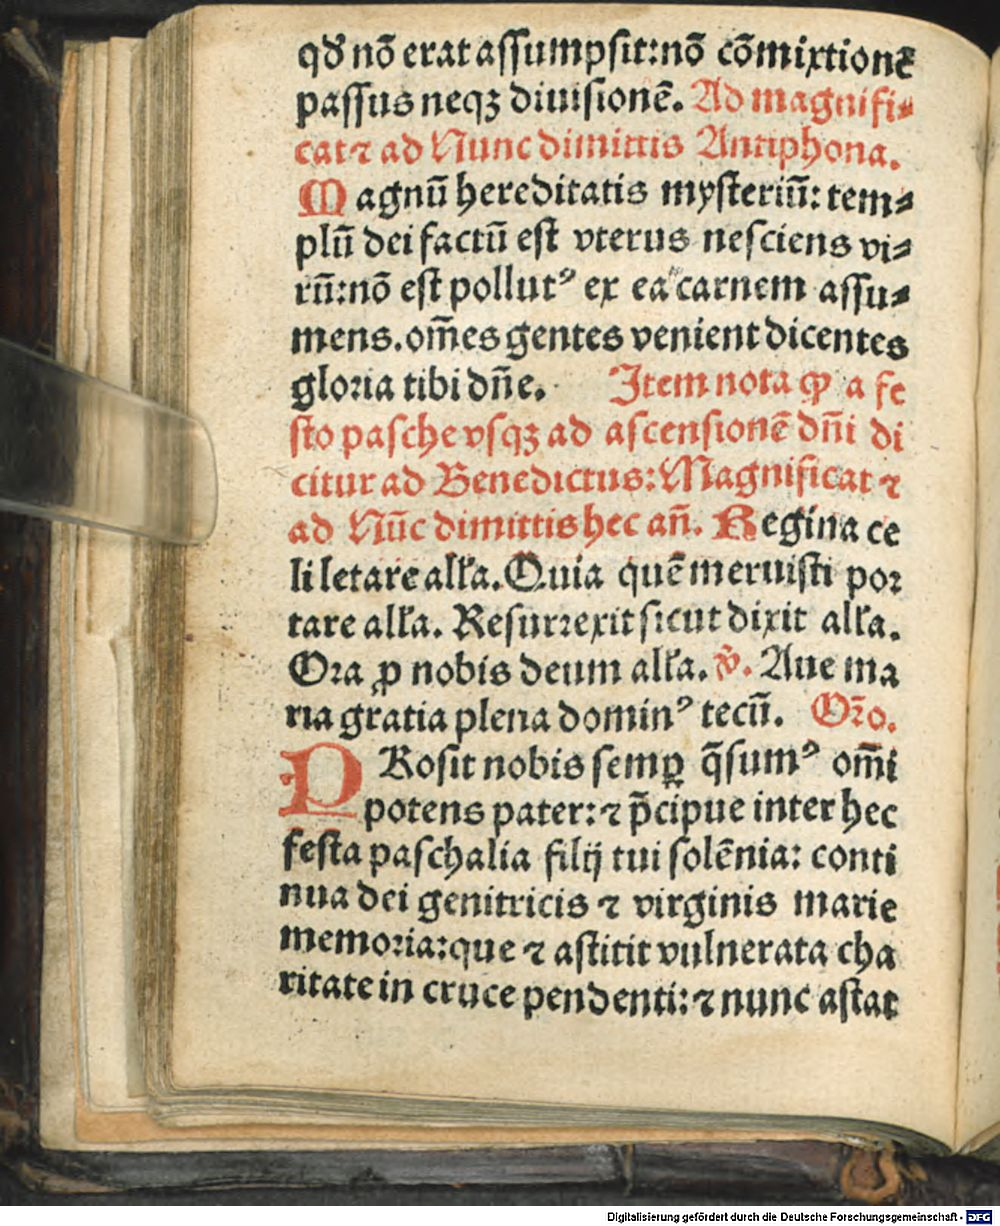 qđ nō erat aſſumpſit:nō cōmixtionē
paſſus neqꝫ diuiſionē. Ad magnifi⸗
cat ⁊ ad Nunc dimittis Antiphona.
Magnū hereditatis myſteriū: tem⸗
plū dei factū eſt vterus neſciens vi⸗
rū:nō eſt pollutꝰ ex ea carnem aſſu⸗
mens.om̄es gentes venient dicentes
gloꝛia tibi dn̄e. Item nota ꝙ a fe
ſto paſche vſqꝫ ad aſcenſionē dn̄i di
citur ad Benedictus: Magnificat ⁊
ad Nūc dimittis hec an̄. Regina ce
li letare alľa. Quia quē meruiſti poꝛ
tare alľa. Reſurꝛexit ſicut dixit alľa.
Oꝛa ꝓ nobis deum alľa. v̄. Aue ma
ria gratia plena dominꝰ tecū. Oꝛ̄o.
PRoſit nobis ſemꝑ q̄ſumꝰ om̄i
potens pater: ⁊ p̄cipue inter hec
feſta paſchalia filij tui ſolēnia: conti
nua dei genitricis ⁊ virginis marie
memoꝛia:que ⁊ aſtitit vulnerata cha
ritate in cruce pendenti: ⁊ nunc aſtat
Digitalisierung gefördert durch die Deutsche Forschungsgemeinschaft - DFG